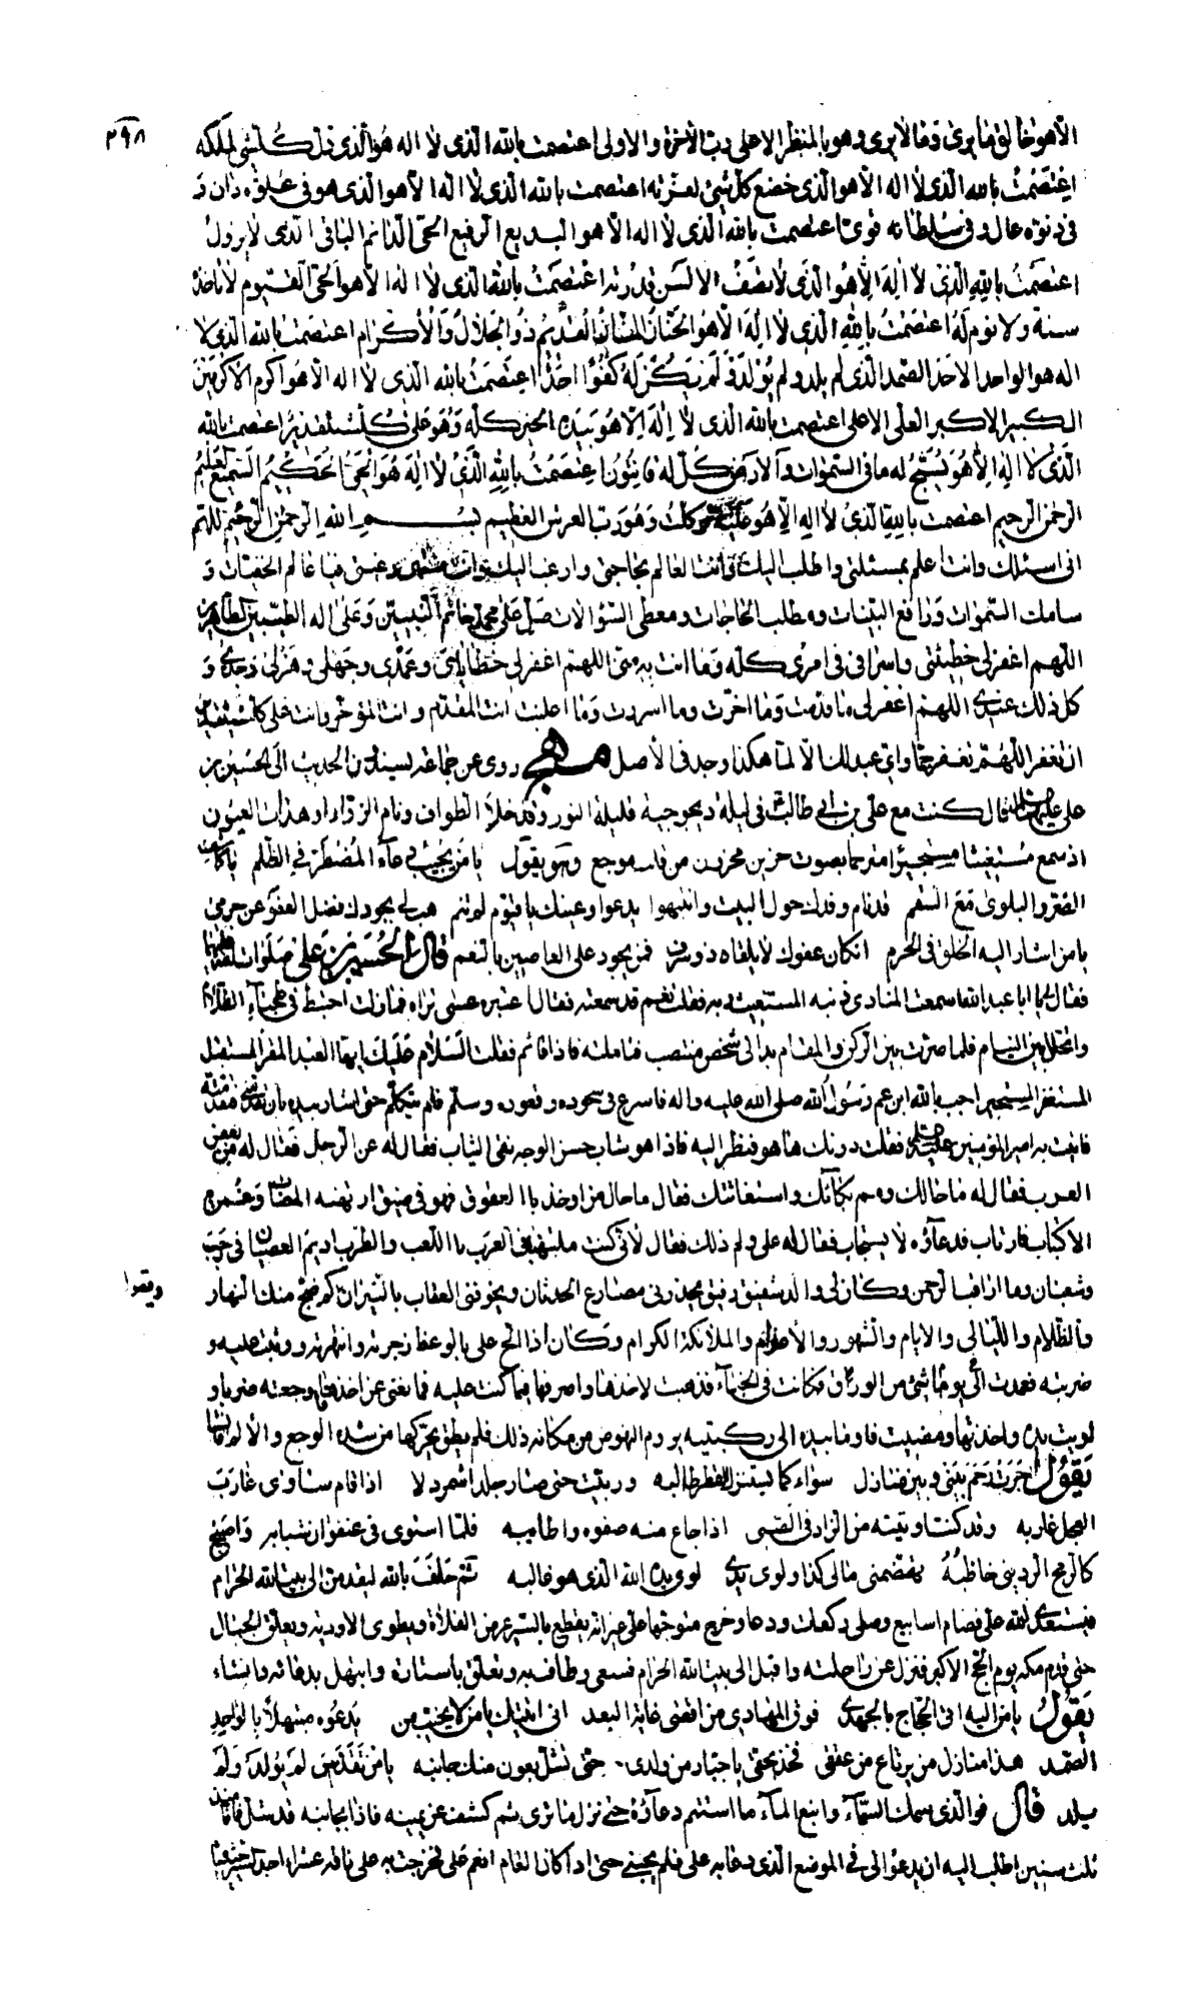 ٢٩٨
الا هو خالق ما يرى وما لا يرى وهو بالمنظر الاعلى رب الآخرة والاولى اعتصمت بالله الذى لا اله هو الذى ذل كلشئ لملكه
اعتصمت بالله الذى لا اله الا هو الذى خضع كل شئ لعزته اعتصمت بالله الذى لا اله الا هو الذى هو فى علوه دان و
فى دنوه عال وفى سلطانه قوى اعتصمت بالله الذى لا اله الا هو البديع الرفيع الحى الدائم الباقى الذى لا يزول
اعتصمت بالله الذى لا اله الا هو الذى لا تصف الالسن قدرته اعتصمت بالله الذى لا اله الا هو الحى القيوم لا تأخذه
سنة ولا نوم له اعتصمت بالله الذى لا اله الا هو الحنان المنان القديم ذو الجلال والاكرام اعتصمت بالله الذى لا
اله هو الواحد الاحد الصمد الذى لم يلد ولم يولد ولم يكن له كفوا احد اعتصمت بالله الذى لا اله الا هو اكرم الاكرمين
الكبير الاكبر العلى الاعلى اعتصمت بالله الذى لا اله الا هو بيده الخير كله وهو على كلشئ قدير اعتصمت بالله
الذى لا اله الا هو يسبح له ما فى السموات والارض كل له قانتون اعتصمت بالله الذى لا اله هو الحى الحكيم السميع العليم
الرحمن الرحيم اعتصمت بالله الذى لا اله الا هو عليه توكلت وهو رب العرش العظيم بسم الله الرحمن الرحيم اللهم
انى اسئلك وانت اعلم بمسئلتى واطلب اليك وانت العالم بحاجتى وارغب اليك وانت منتهى رغبتى فيا عالم الخفيات و
سامك السموات ودافع البليات ومطلب الحاجات ومعطى السؤالات صل على محمد خاتم النبيين وعلى اله الطيبين الطاهرين
اللهم اغفر لى خطيئتى واسرافى فى امرى كله وما انت به منى اللهم اغفر لى خطاياى وعمدى وجهلى وهزلى وجدى و
كل ذلك عندى اللهم اغفر لى ما قدمت وما اخرت وما اسررت وما اعلنت انت المقدم وانت المؤخر وانت على كلشئ قدير
ان تغفر اللهم تغفر جما واى عبد لك الا لما هكذا وجد فى الاصل مهج روى عن جماعة يسندون الحديث الى الحسين بن
على عليهما السلام قال كنت مع على بن ابى طالب فى ليلة ديجوجية قليلة النور وقد خلا الطواف ونام الزوار وهدأت العيون
اذ سمع مستغيثا مستجيرا مترحما بصوت حزين محزون من قلب موجع وهو يقول يا من يجيب دعاء المضطر فى الظلم يا كاشف
الضر والبلوى مع السقم قد نام وفدك حول البيت وانتبهوا يدعو وعينك يا قيوم لم تنم هب لى بجودك فضل العفو عن جرمى
يا من اشار اليه الخلق فى الحرم ان كان عفوك لا يلقاه ذو سرف فمن يجود على العاصين بالنعم قال الحسين بن على صلوات الله عليهما
فقال لى يا ابا عبد الله اسمعت المنادى ذنبه المستغيث ربه فقلت نعم قد سمعته فقال اعتبره عسى تراه فما زلت اخبط فى طخياء الظلام
واتخلل بين النيام فلما صرت بين الركن والمقام بدا لى شخص منتصب فتاملته فاذا قائم فقلت السلام عليك ايها العبد المقر المستقيل
المستغفر المستجير اجب بالله ابن عم رسول الله صلى الله عليه واله فاسرع فى سجوده وقعوده وسلم فلم يتكلم حتى اشار بيده بان تقدمنى فتقدمته
فاتيت به امير المؤمنين فقلت دونك ها هو فنظر اليه فاذا هو شاب حسن الوجه نقى الثياب فقال له من الرجل فقال له من بعض
العرب فقال له ما حالك ومم بكاؤك واستغاثتك فقال ما حال من اوخذ بالعقوق فهو فى ضيق ارتهنه المصاب وغمره
الاكتياب فارتاب فدعاؤه لا يستجاب فقال له على ولم ذلك فقال لانى كنت ملتهيا فى العرب باللعب والطرب اديم العصيان فى رجب
وشعبان وما اراقب الرحمن وكان لى والد شفيق رفيق يحذرنى مصارع الحدثان ويخوفنى العقاب بالنيران كم ضج منك النهار
والظلام والليالى والايام والشهور والاعوام والملائكة الكرام وكان اذا الح على بالوعظ زجرته وانتهرته ووثبت عليه و
ويقوا
ضربته فعمدت الى يوما شئ من الورق فكانت فى الخباء فذهبت لاخذها واصرفها فيما كنت عليه فمانعنى عن اخذها فاوجعته ضربا و
لويت يده واخذتها ومضيت فاومأ بيده الى ركبتيه يروم النهوض من مكانه ذلك فلم يطق يحركها من شدة الوجع والالم فانشأ
يقول جرت رحم بينى وبين منازل سواء كما يستنزل القطر طالبه وربيت حتى صار جلدا شمردلا اذا قام ساوى غارب
الفحل غاربه وقد كنت اوتيه من الزاد فى الصبى اذا جاع منه صفوه واطايبه فلما استوى فى عنفوان شبابه واصبح
كالرمح الردينى خاطبه تهضمنى مالى كذا ولوى يدى لوى يده الله الذى هو غالبه ثم حلف بالله ليقدمن الى بيت الله الحرام
فيستعدى الله على فصام اسابيع وصلى ركعات ودعا وخرج متوجها على عيرانه يقطع بالسير عرض الفلاة ويطوى الاودية ويعلو الجبال
حتى قدم مكة يوم الحج الاكبر فنزل عن راحلته واقبل الى بيت الله الحرام فسعى وطاف به وتعلق باستاره وابتهل بدعائه وانشاء
يقول يا من اليه اتى الحجاج بالجهد فوق المهادى من اقصى غاية البعد انى اتيتك يا من لا يخيب من يدعوه مبتهلا بالواحد
الصمد هذا منازل من يرتاع من عققى فخذ بحقى يا جبار من ولدى حتى تشل بعون منك جانبه يا من تقدس لم يولد ولم
يلد قال فوالذى سمك السماء وانبع الماء ما استتم دعاؤه حتى نزل ما ترى ثم كشف عن يمينه فاذا بجانبه قد شل فانا منذ
ثلث سنين اطلب اليه ان يدعو لى فى الموضع الذى دعا به على فلم يجبنى حتى اذا كان العام انعم على فخرجت به على ناقة عشراء اجد السير حثيثا